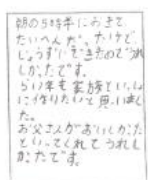 朝の5時半におきて、
たいへんだったけど、
じょうずにできたのでうれ
しかったです。
らい年も家族といっしょ
に作りたいと思いまし
た。
お父さんがおいしかった
といってくれてうれし
かったです。